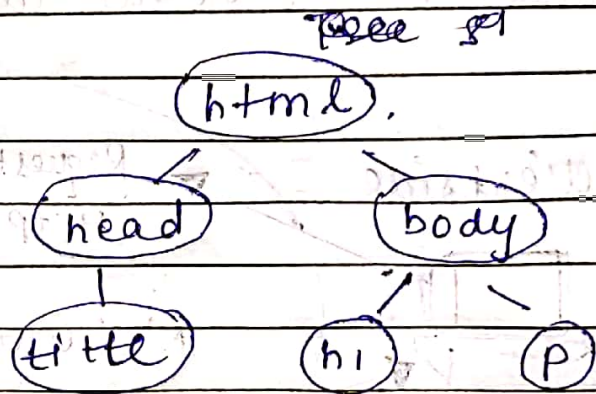 html.
head body
title h1 p